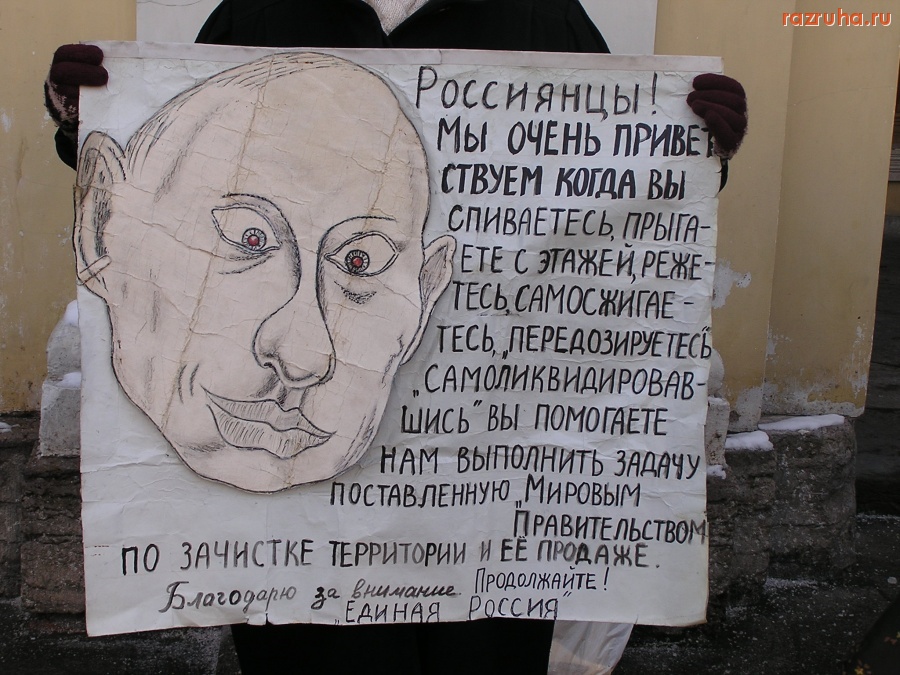 razruha.ru
Россиянцы!
Мы очень привет
ствуем когда вы
спиваетесь, прыга-
ете с этажей, реже-
тесь, самосжигае-
тесь, „передозируетесь"
„самоликвидировав-
шись" вы помогаете
нам выполнить задачу
поставленную „Мировым
Правительством
по зачистке территории и её продаже.
Благодарю за внимание. Продолжайте!
"Единая Россия"